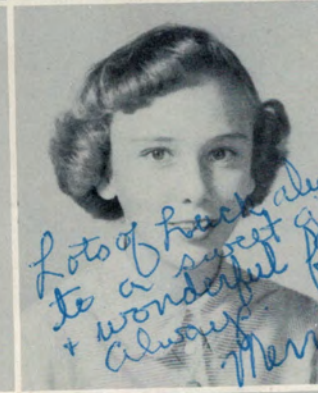 Lots of Luck
to a sweet
+ wonderful
always.